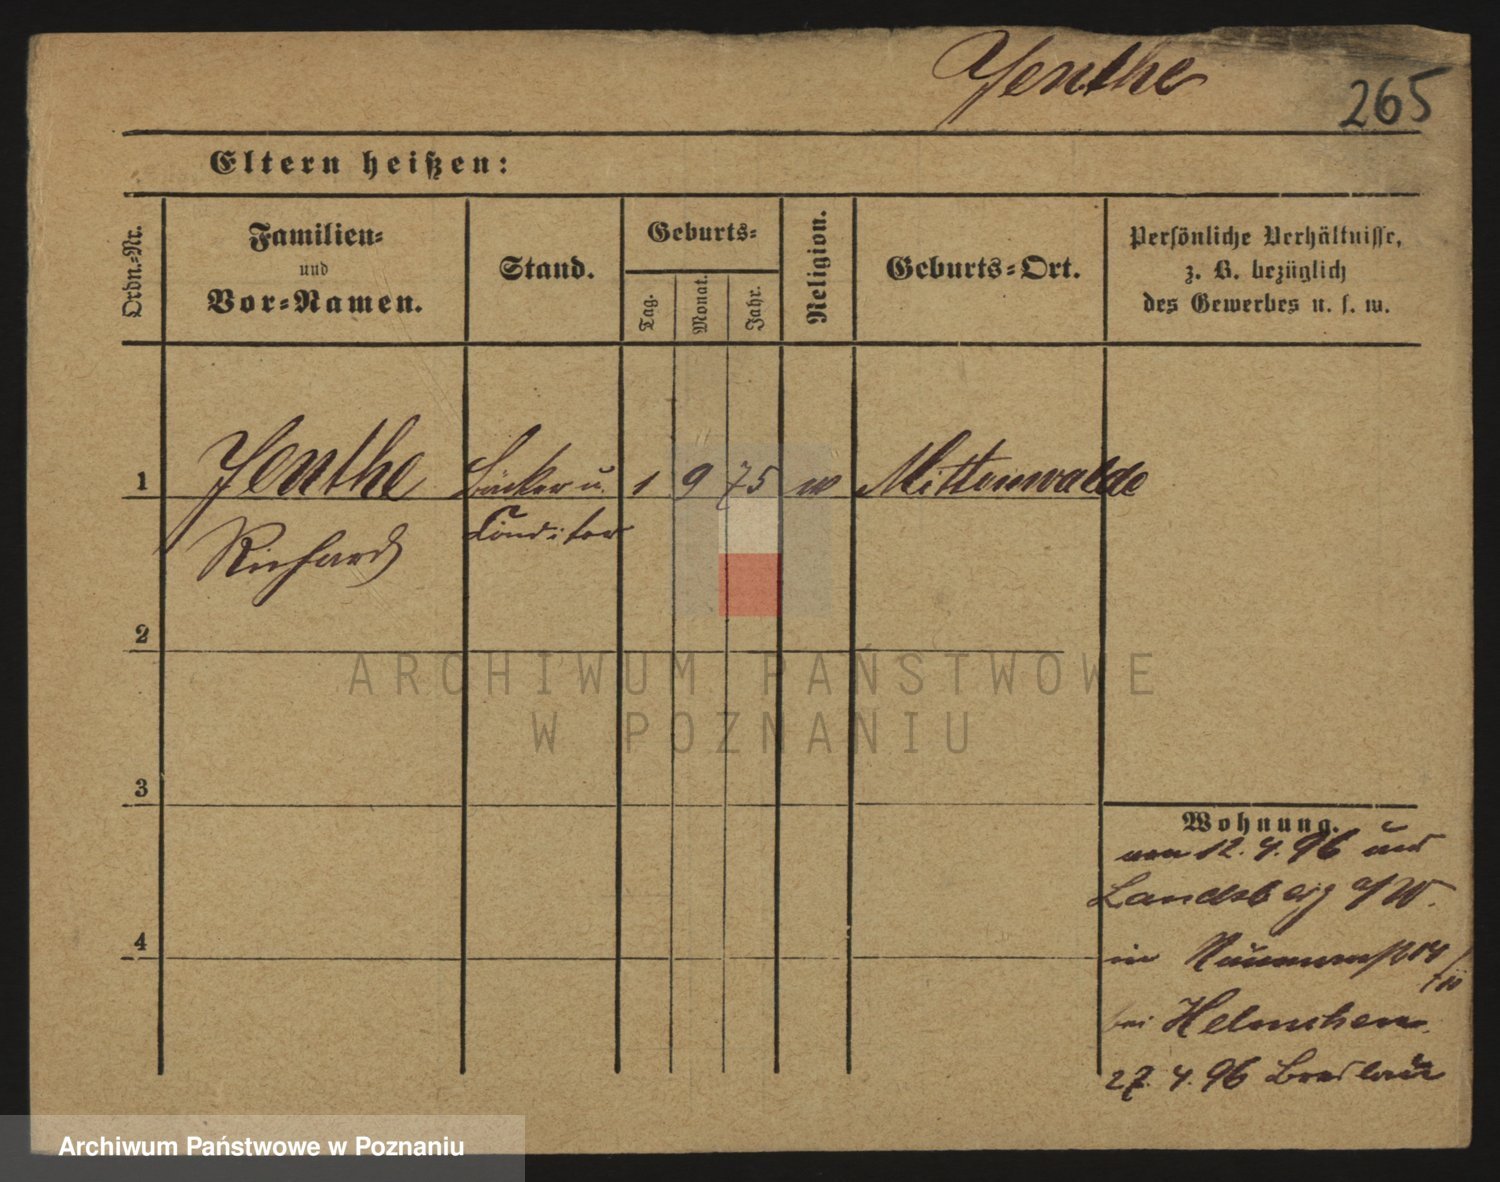 Jenthe
265
Eltern heißen:
Ordn.-Nr.
Familien-
und
Vor-Namen.
Stand.
Geburts-
Tag.
Monat.
Jahr.
Religion.
Geburts-Ort.
Persönliche Verhältnisse,
z. B. bezüglich
des Gewerbes u. s. w.
1 Jenthe Bäcker u. 1 9 75 Mittenwalde
Richard Conditor
2
3
4
Wohnung.
12. 4. 96 aus
Landsberg a/W.
in 14/
bei Helmchen
27. 4. 96 Breslau
ARCHIWUM PAŃSTWOWE
W POZNANIU
Archiwum Państwowe w Poznaniu